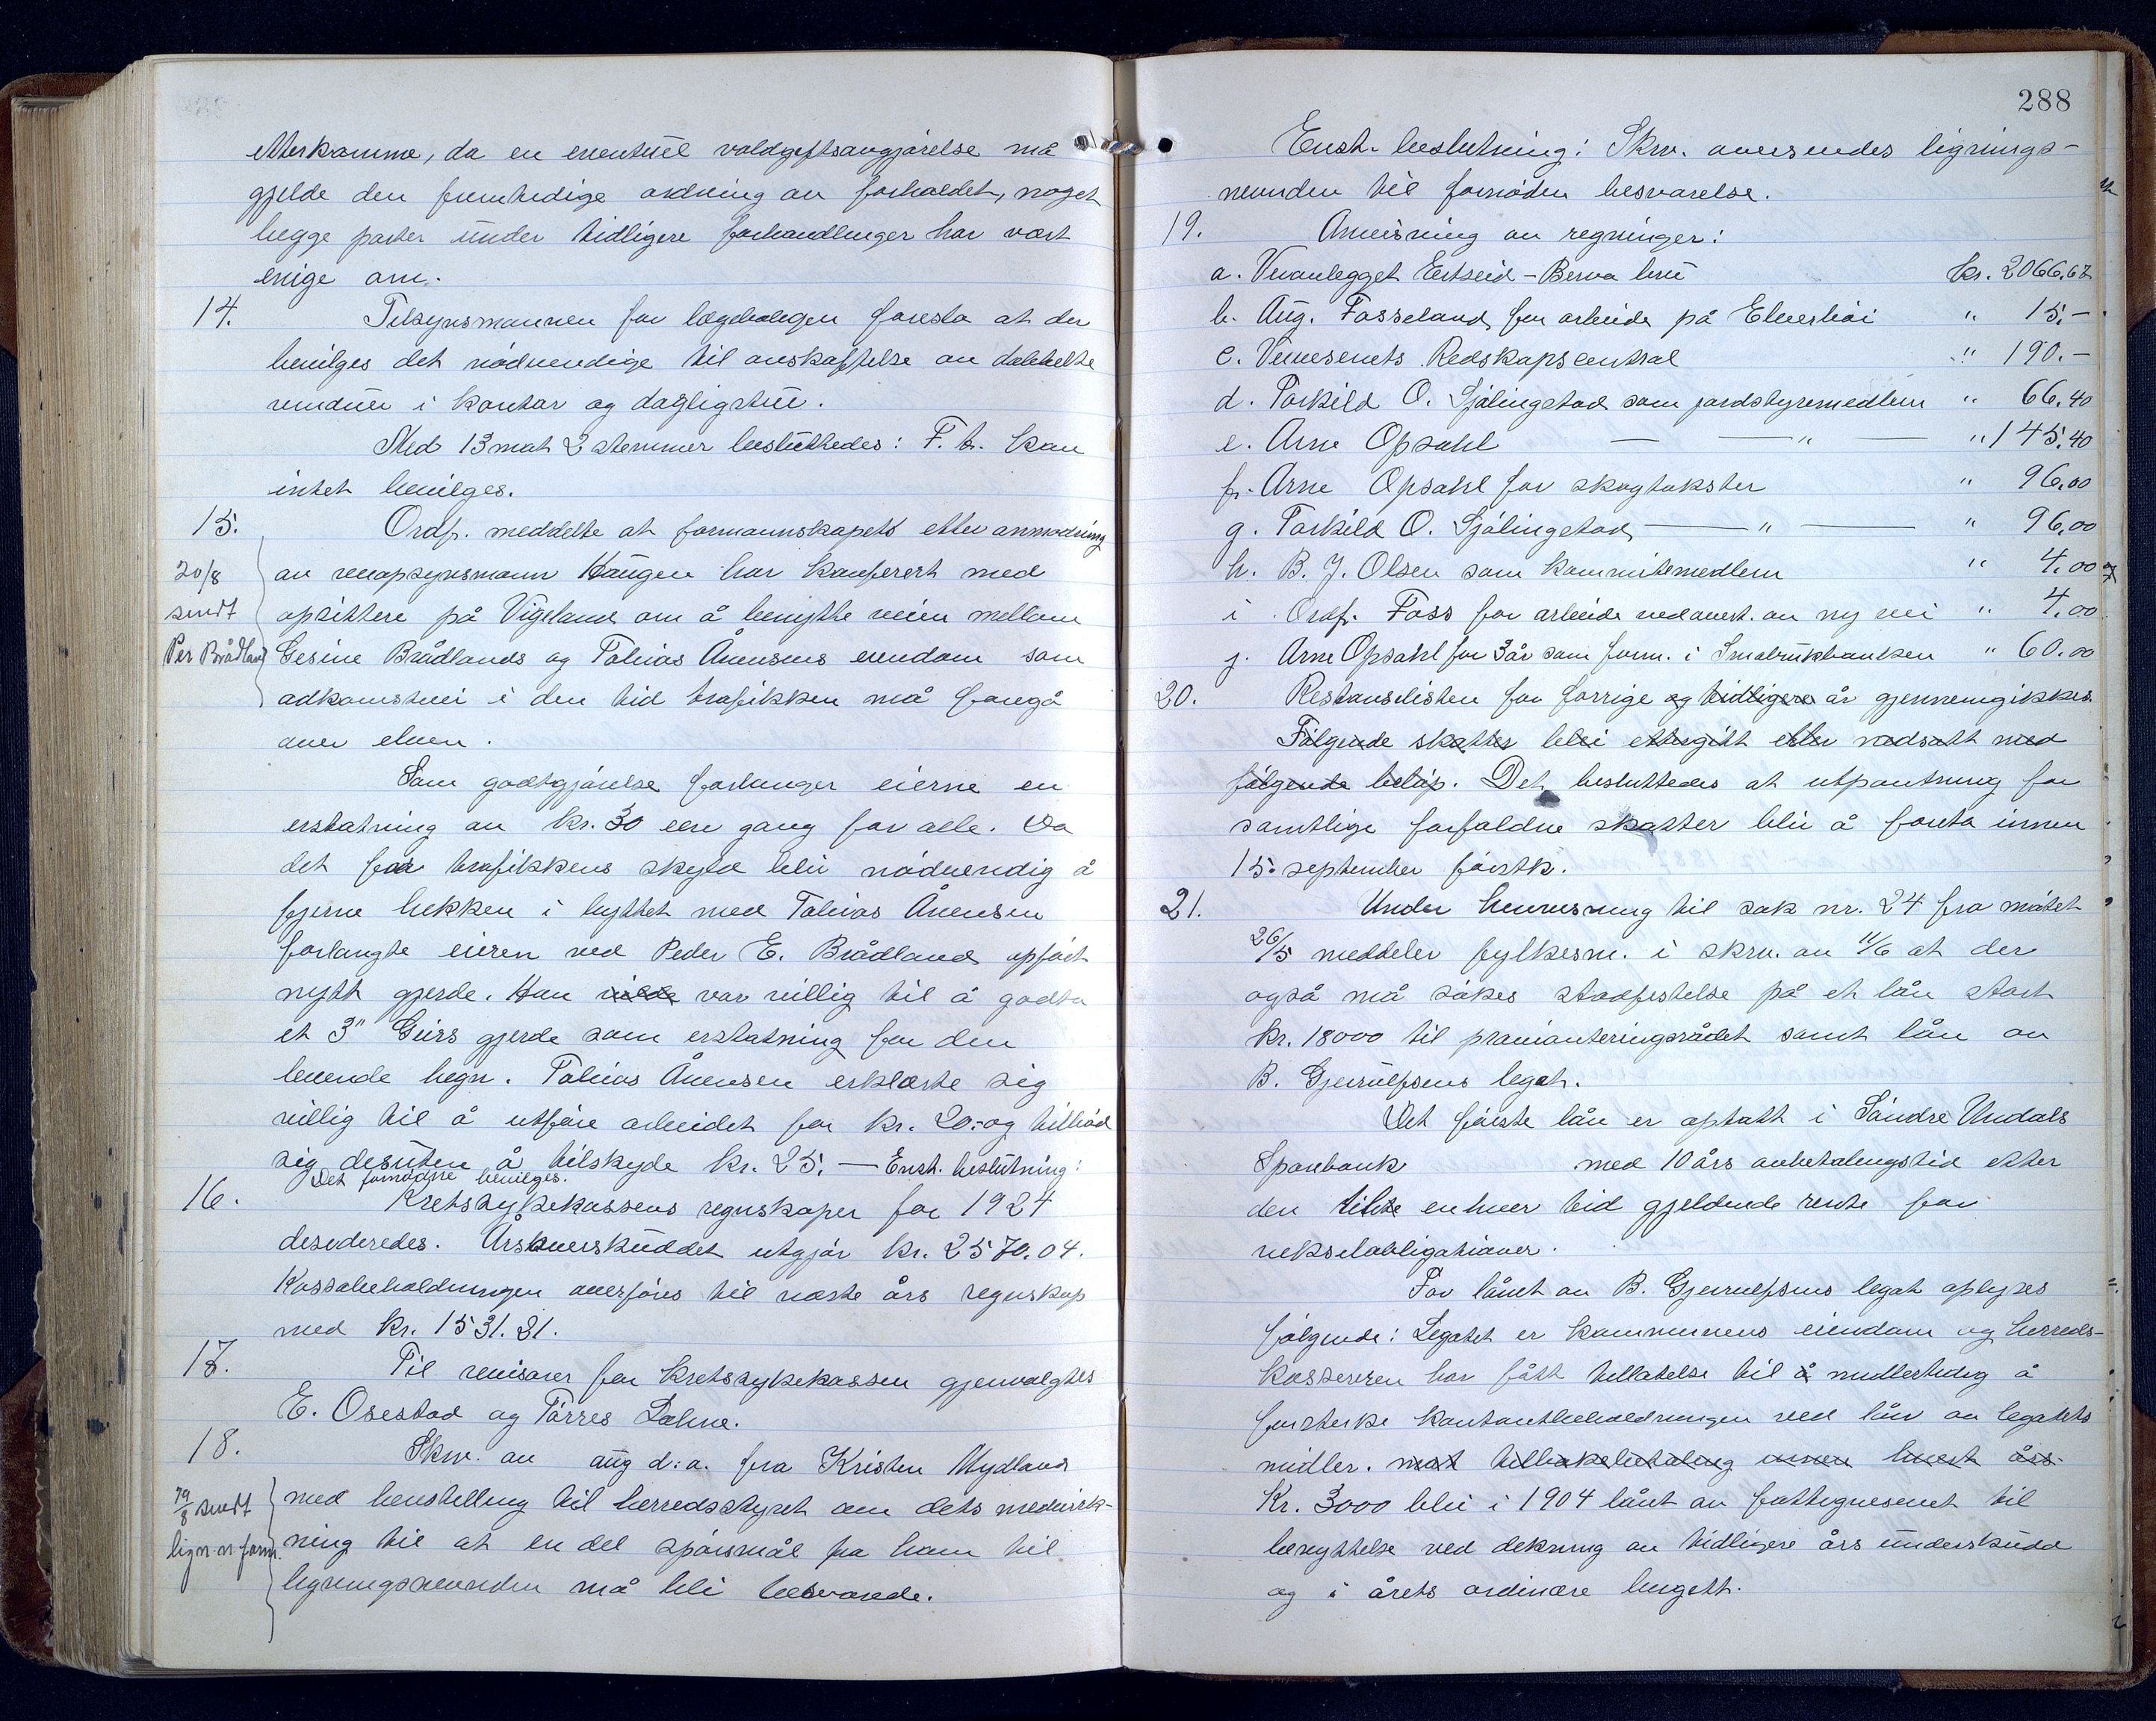 etterkomme, da en eventuel voldgiftsavgjørelse må
gjelde den fremtidige ordning av forholdet, noget
begge parter under tidligere forhandlinger har vært
enige om.
14. Tilsynsmannen for lægeboligen foreslo at der
bevilges det nødvendige til anskaffelse av dobbelte
vinduer i kontor og dagligstue.
Med 13 mot 2 stemmer besluttedes: F. t. kan
intet bevilges.
15. Ordf. meddelte at formannskapets etter anmodning
20/8 av veiopsynsmann Haugen har konferert med
sendt opsittere på Vigeland om å benytte veien mellem
Per Brådland Gesine Brådlands og Tobias Åvensens eiendom som
adkomstvei i den tid trafikken må foregå
over elven.
Som godtgjørelse forlanger eierne en
erstatning av kr. 30 een gang for alle. Da
det for trafikkens skyld blir nødvendig å
fjerne hekken i byttet med Tobias Åvensen
forlangte eieren ved Peder E. Brådland opført
nytt gjerde. Han vilde var villig til å godta
et 3" Geirs gjerde som erstatning for den
levende hegn. Tobias Åvensen erklærte sig
villig til å utføre arbeidet for kr. 20.- og tilbød
sig desuten å tilskyde kr. 25. — Enst. beslutning:
Det fornødne bevilges.
16. Kretssykekassens regnskaper for 1924
desideredes. Årsoverskuddet utgjør kr. 2570.04.
Kassabeholdningen overføres til næste års regnskap
med kr. 1531.31.
17. Til revisorer for kretssykekassen gjenvalgtes
E. Osestad og Tørres Lohne.
18. Skriv. av aug d: a. fra Kristen Mydland
19/8 sendt med henstilling til herredsstyret om dets medvirk-
lign. n. form. ning til at en del spørsmål fra ham til
ligningsnevnden må bli besvarede.
288
Enst. beslutning: Skriv. oversendes lignings-
nevnden til fornøden besvarelse.
19. Anvisning av regninger:
a. Veianlegget Eertseid - Berva bru kr. 2066,67
b. Aug. Fosseland for arbeide på Elverhøi " 15.-
c. Veivesenets Redskapscentral " 190.-
d. Torkild O. Sjølingstad som jordstyremedlem " 66,40
e. Arne Opsahl — — " — " 145,40
f. Arne Opsahl for skogtakster " 96,00
g. Torkild O. Sjølingstad — " — " 96,00
h. B. J. Olsen som komitémedlem " 4,00
i. Ordf. Foss for arbeide ved overt. av ny vei " 4,00
j. Arne Opsahl for 3 år som form. i Småbrukbanken " 60.00
20. Restanselisten for forrige og tidligere år gjennemgikkes.
Følgende skatter blei ettergitt eller nedsatt med
følgende beløp. Det besluttedes at utpantning for
samtlige forfaldne skatter blir å foreta innen
15. september førstk.
21. Under henvisning til sak nr. 24 fra møtet
26/5 meddeler fylkesm. i skriv. av 11/6 at der
også må søkes stadfestelse på et lån stort
kr. 18000 til provianteringsrådet samt lån av
B. Gjerulfsens legat.
Det første lån er optatt i Søndre Undals
Sparebank med 10 års avbetalingstid etter
den til enhver tid gjeldende rente for
vekselobligationer.
For lånet av B. Gjerulfsens legat oplyses
følgende: Legatet er kommunens eiendom og herreds-
kassereren har fått tillatelse til å midlertidig å
forsterke kontantbeholdningen ved lån av legatets
midler. mot tilbakebetaling innen hvert års.
Kr. 3000 blei i 1904 lånt av fattigvesenet til
benyttelse ved dekning av tidligere års underskudd
og i årets ordinære budgett.